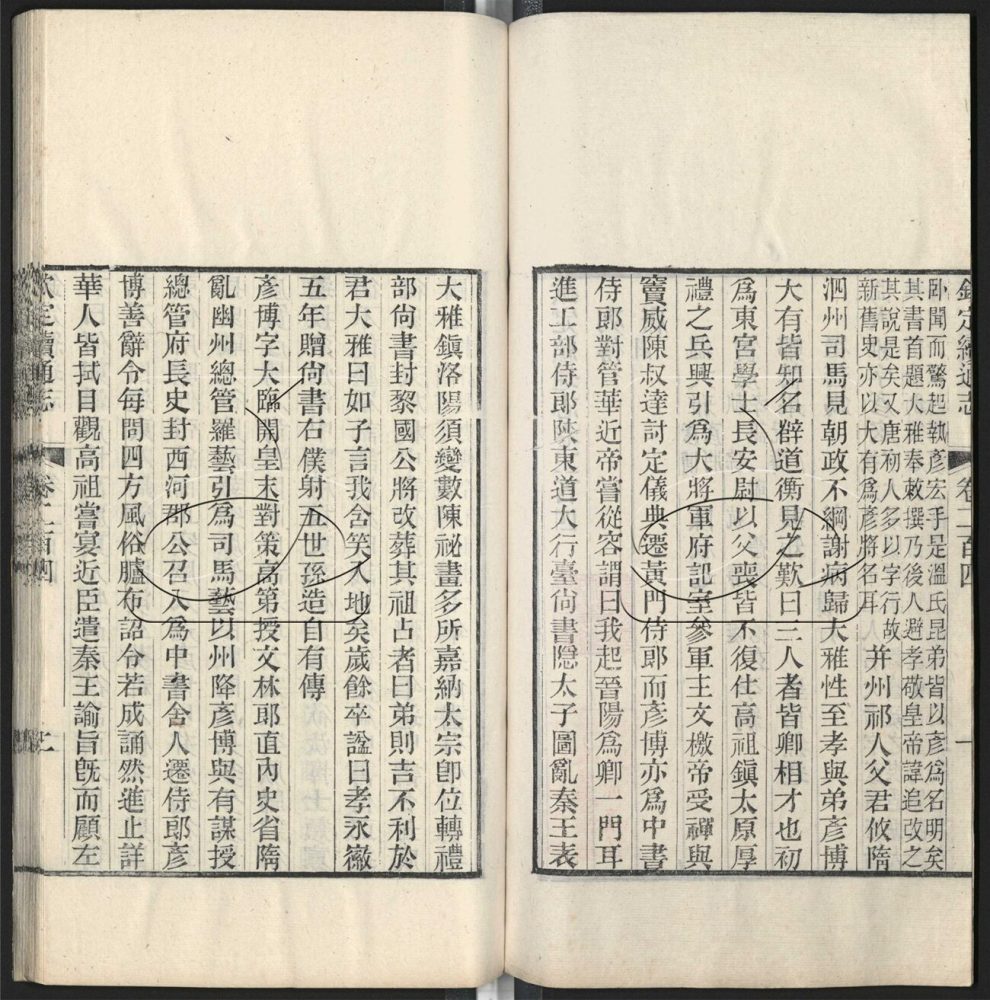 欽定續通志 卷二百四 一
卧聞而驚起執彥宏手是溫氏昆弟皆以彥爲名明矣
其書首題大雅奉敕撰乃後人避孝敬皇帝諱追改之
其說是矣又唐初人多以字行故
新舊史亦以大有爲彥將名耳 并州祁人父君攸隋
泗州司馬見朝政不綱謝病歸大雅性至孝與弟彥博
大有皆知名薛道衡見之歎曰三人者皆卿相才也初
爲東宮學士長安尉以父喪皆不復仕高祖鎭太原厚
禮之兵興引爲大將軍府記室參軍主文檄帝受禪與
竇威陳叔達討定儀典遷黃門侍郎而彥博亦爲中書
侍郎對管華近帝嘗從容謂曰我起晉陽爲卿一門耳
進工部侍郎陝東道大行臺尙書隱太子圖亂秦王表
大雅鎭洛陽須變數陳祕畫多所嘉納太宗卽位轉禮
部尙書封黎國公將改葬其祖占者曰弟則吉不利於
君大雅曰如子言我含笑入地矣歲餘卒諡曰孝永徽
五年贈尙書右僕射五世孫造自有傳
彥博字大臨開皇末對策高第授文林郎直內史省隋
亂幽州總管羅藝引爲司馬藝以州降彥博與有謀授
總管府長史封西河郡公召入爲中書舍人遷侍郎彥
博善辭令每問四方風俗臚布誥令若成誦然進止詳
華人皆拭目觀高祖嘗宴近臣遣秦王諭旨旣而顧左
欽定續通志 卷二百四